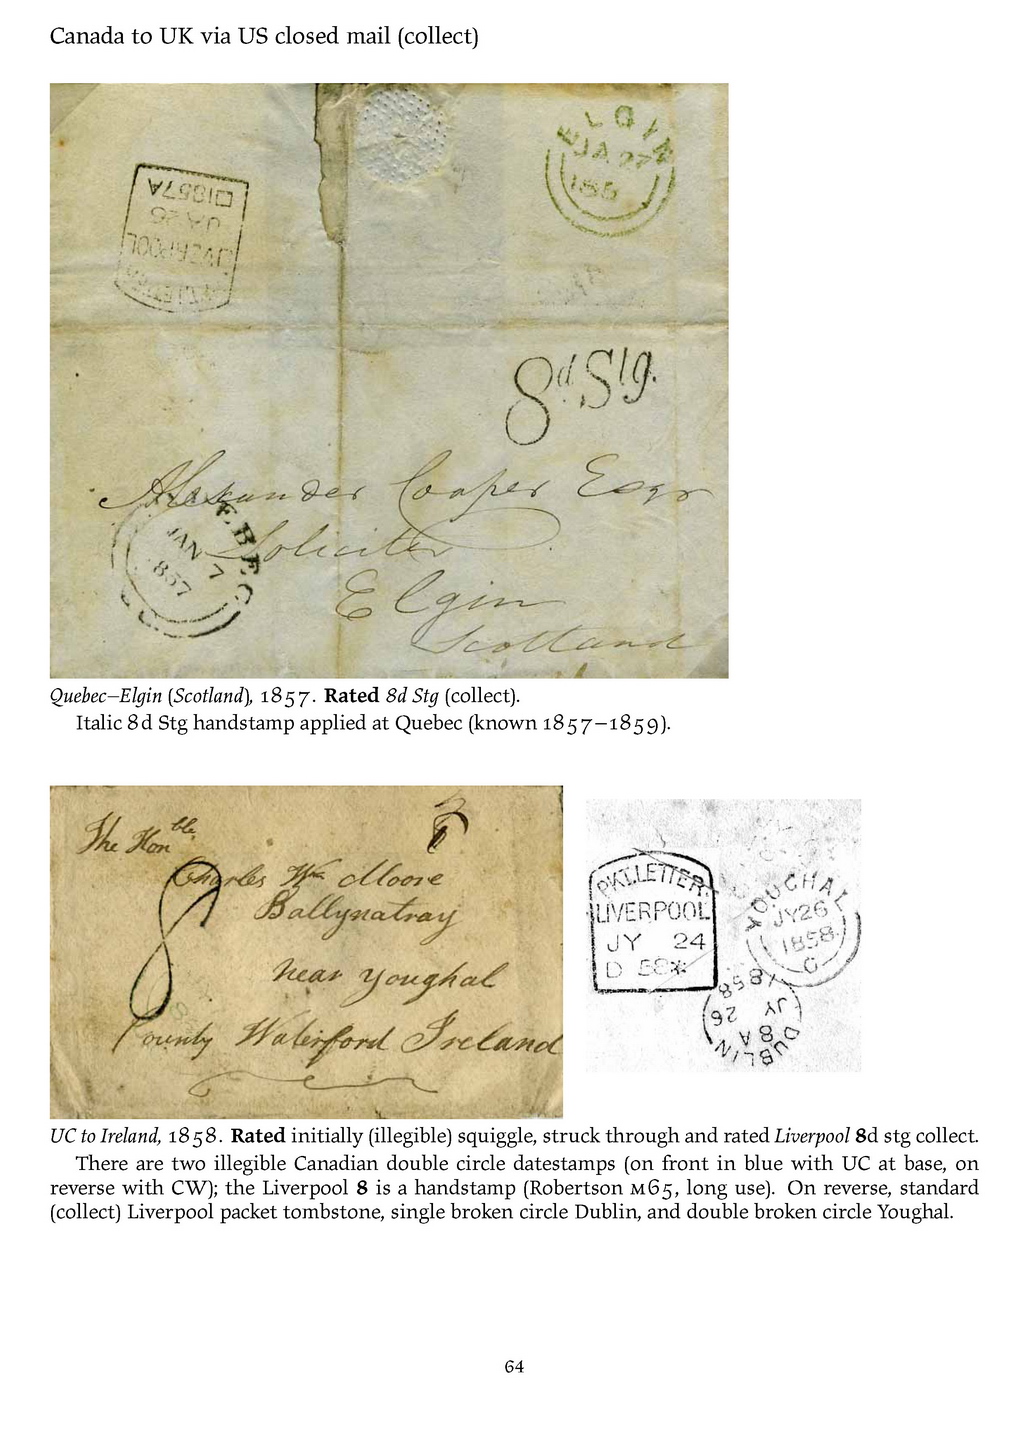 Canada to UK via US closed mail (collect)
ELGIN
JA 27
185
□1857A
JA 26
LIVERPOOL
8d Stg.
Alexander Cooper Esqr
Soliciter
Elgin
Scotland
EBEC
JAN 7
857
Quebec–Elgin (Scotland), 1857. Rated 8d Stg (collect).
Italic 8d Stg handstamp applied at Quebec (known 1857–1859).
The Honble.
Charles Wm Moore
Ballynatray
near Youghal
County Waterford Ireland
8
PKT.LETTER.
LIVERPOOL
JY 24
D 58*
YOUGHAL
JY26
1858.
C
1858
JY 26
8A
DUBLIN
UC to Ireland, 1858. Rated initially (illegible) squiggle, struck through and rated Liverpool 8d stg collect.
There are two illegible Canadian double circle datestamps (on front in blue with UC at base, on
reverse with CW); the Liverpool 8 is a handstamp (Robertson M65, long use). On reverse, standard
(collect) Liverpool packet tombstone, single broken circle Dublin, and double broken circle Youghal.
64